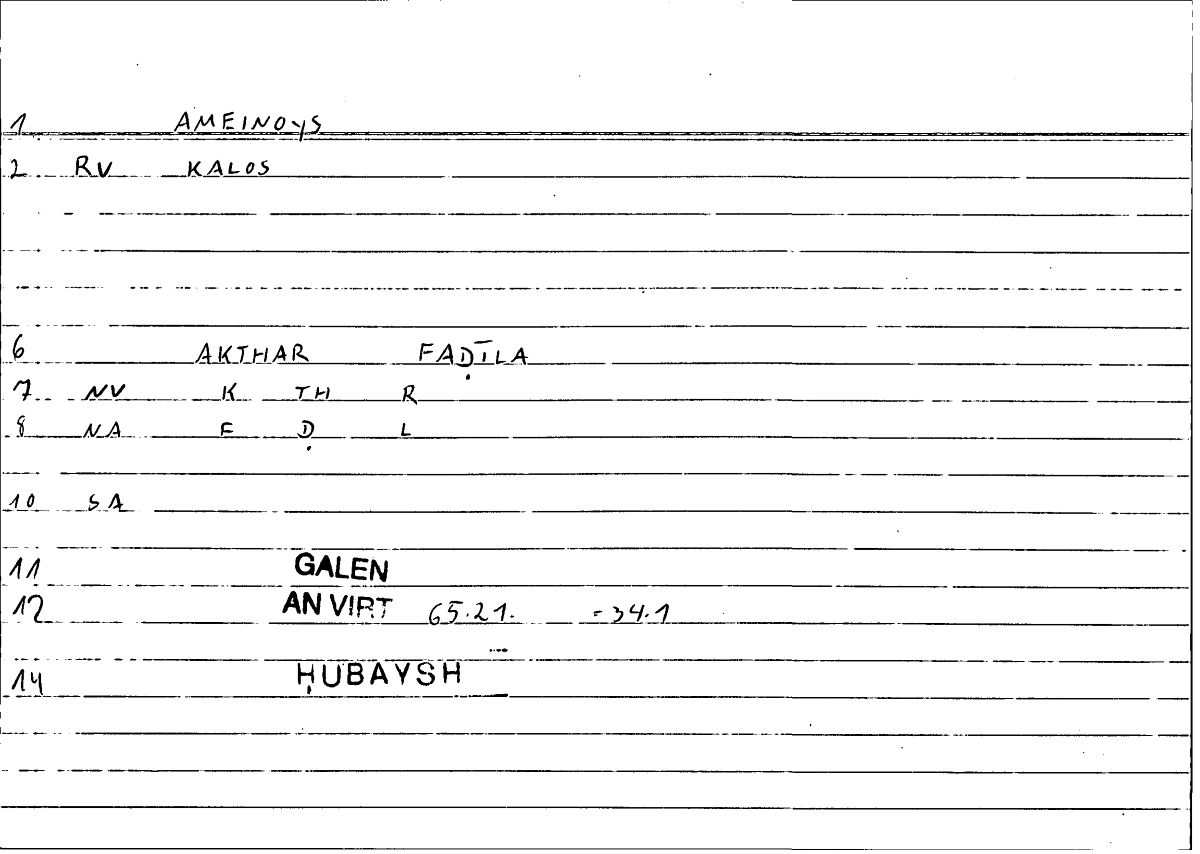 1 AMEINOYS
2 RV KALOS
6 AKTHAR FAḌĪLA
7 NV K TH R
8 NA F Ḍ L
10 SA
11 GALEN
12 AN VIRT 65.21. = 34.1
14 ḤUBAYSH